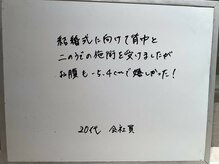 結婚式に向けて背中と
二のうでの施術を受けましたが
お腹も-5.4cmで嬉しかった!
20代 会社員